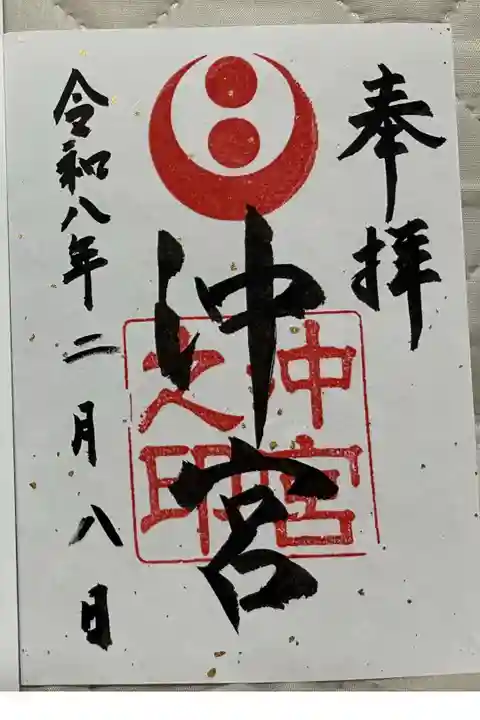 奉拝
沖宮
沖宮
之印
令和八年二月八日